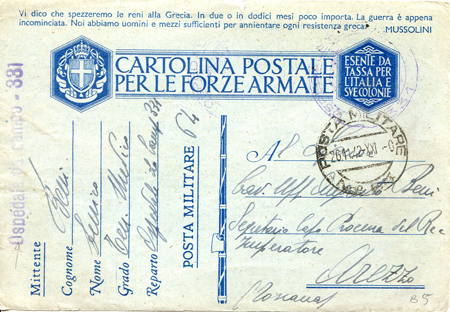 Vi dico che spezzeremo le reni alla Grecia. In due o in dodici mesi poco importa. La guerra è appena
incominciata. Noi abbiamo uomini e mezzi sufficienti per annientare ogni resistenza greca.
MUSSOLINI
CARTOLINA POSTALE
PER LE FORZE ARMATE
ESENTE DA
TASSA PER
L'ITALIA E
SVE COLONIE
POSTA MILITARE
Ospedale da campo - 331
Mittente
Cognome
Nome
Grado Ten. Medico
Reparto Ospedale da Camp 331
POSTA MILITARE 64
Al
Cav. Uff.
Segretario Capo Procura del Re
Imperatore
Arezzo
(Toscana)
B5